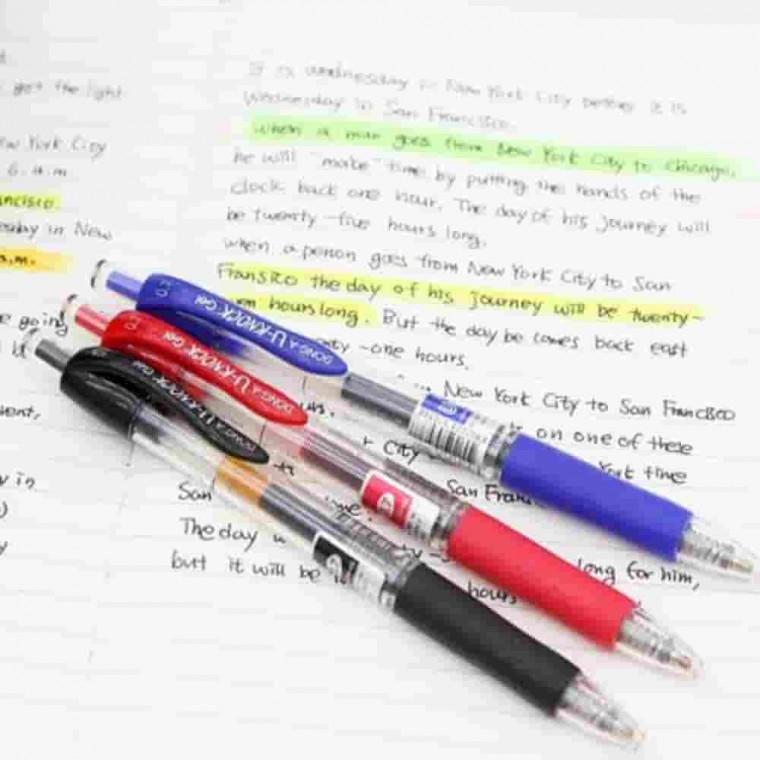 got the light
York City
6. a.m.
ncisco
sday in New
a.m.
e going
y in
It is wednesday in New York City before it is
Wednesday in San Francisco.
when a man goes from New York City to Chicago,
he will "make" time by putting the hands of the
clock back one hour. The day of his journey will
be twenty-five hours long.
when a person goes from New York City to San
Fransico the day of his journey will be twenty-
hours long. But the day he comes back east
ty-one hours.
New York City to San Francisco
on one of these
City
York time
San
San Fran
The day
long for him,
but it will be
hours
DONG-A U-KNOCK Gel
DONG-A U-KNOCK Gel
DONG-A U-KNOCK Gel